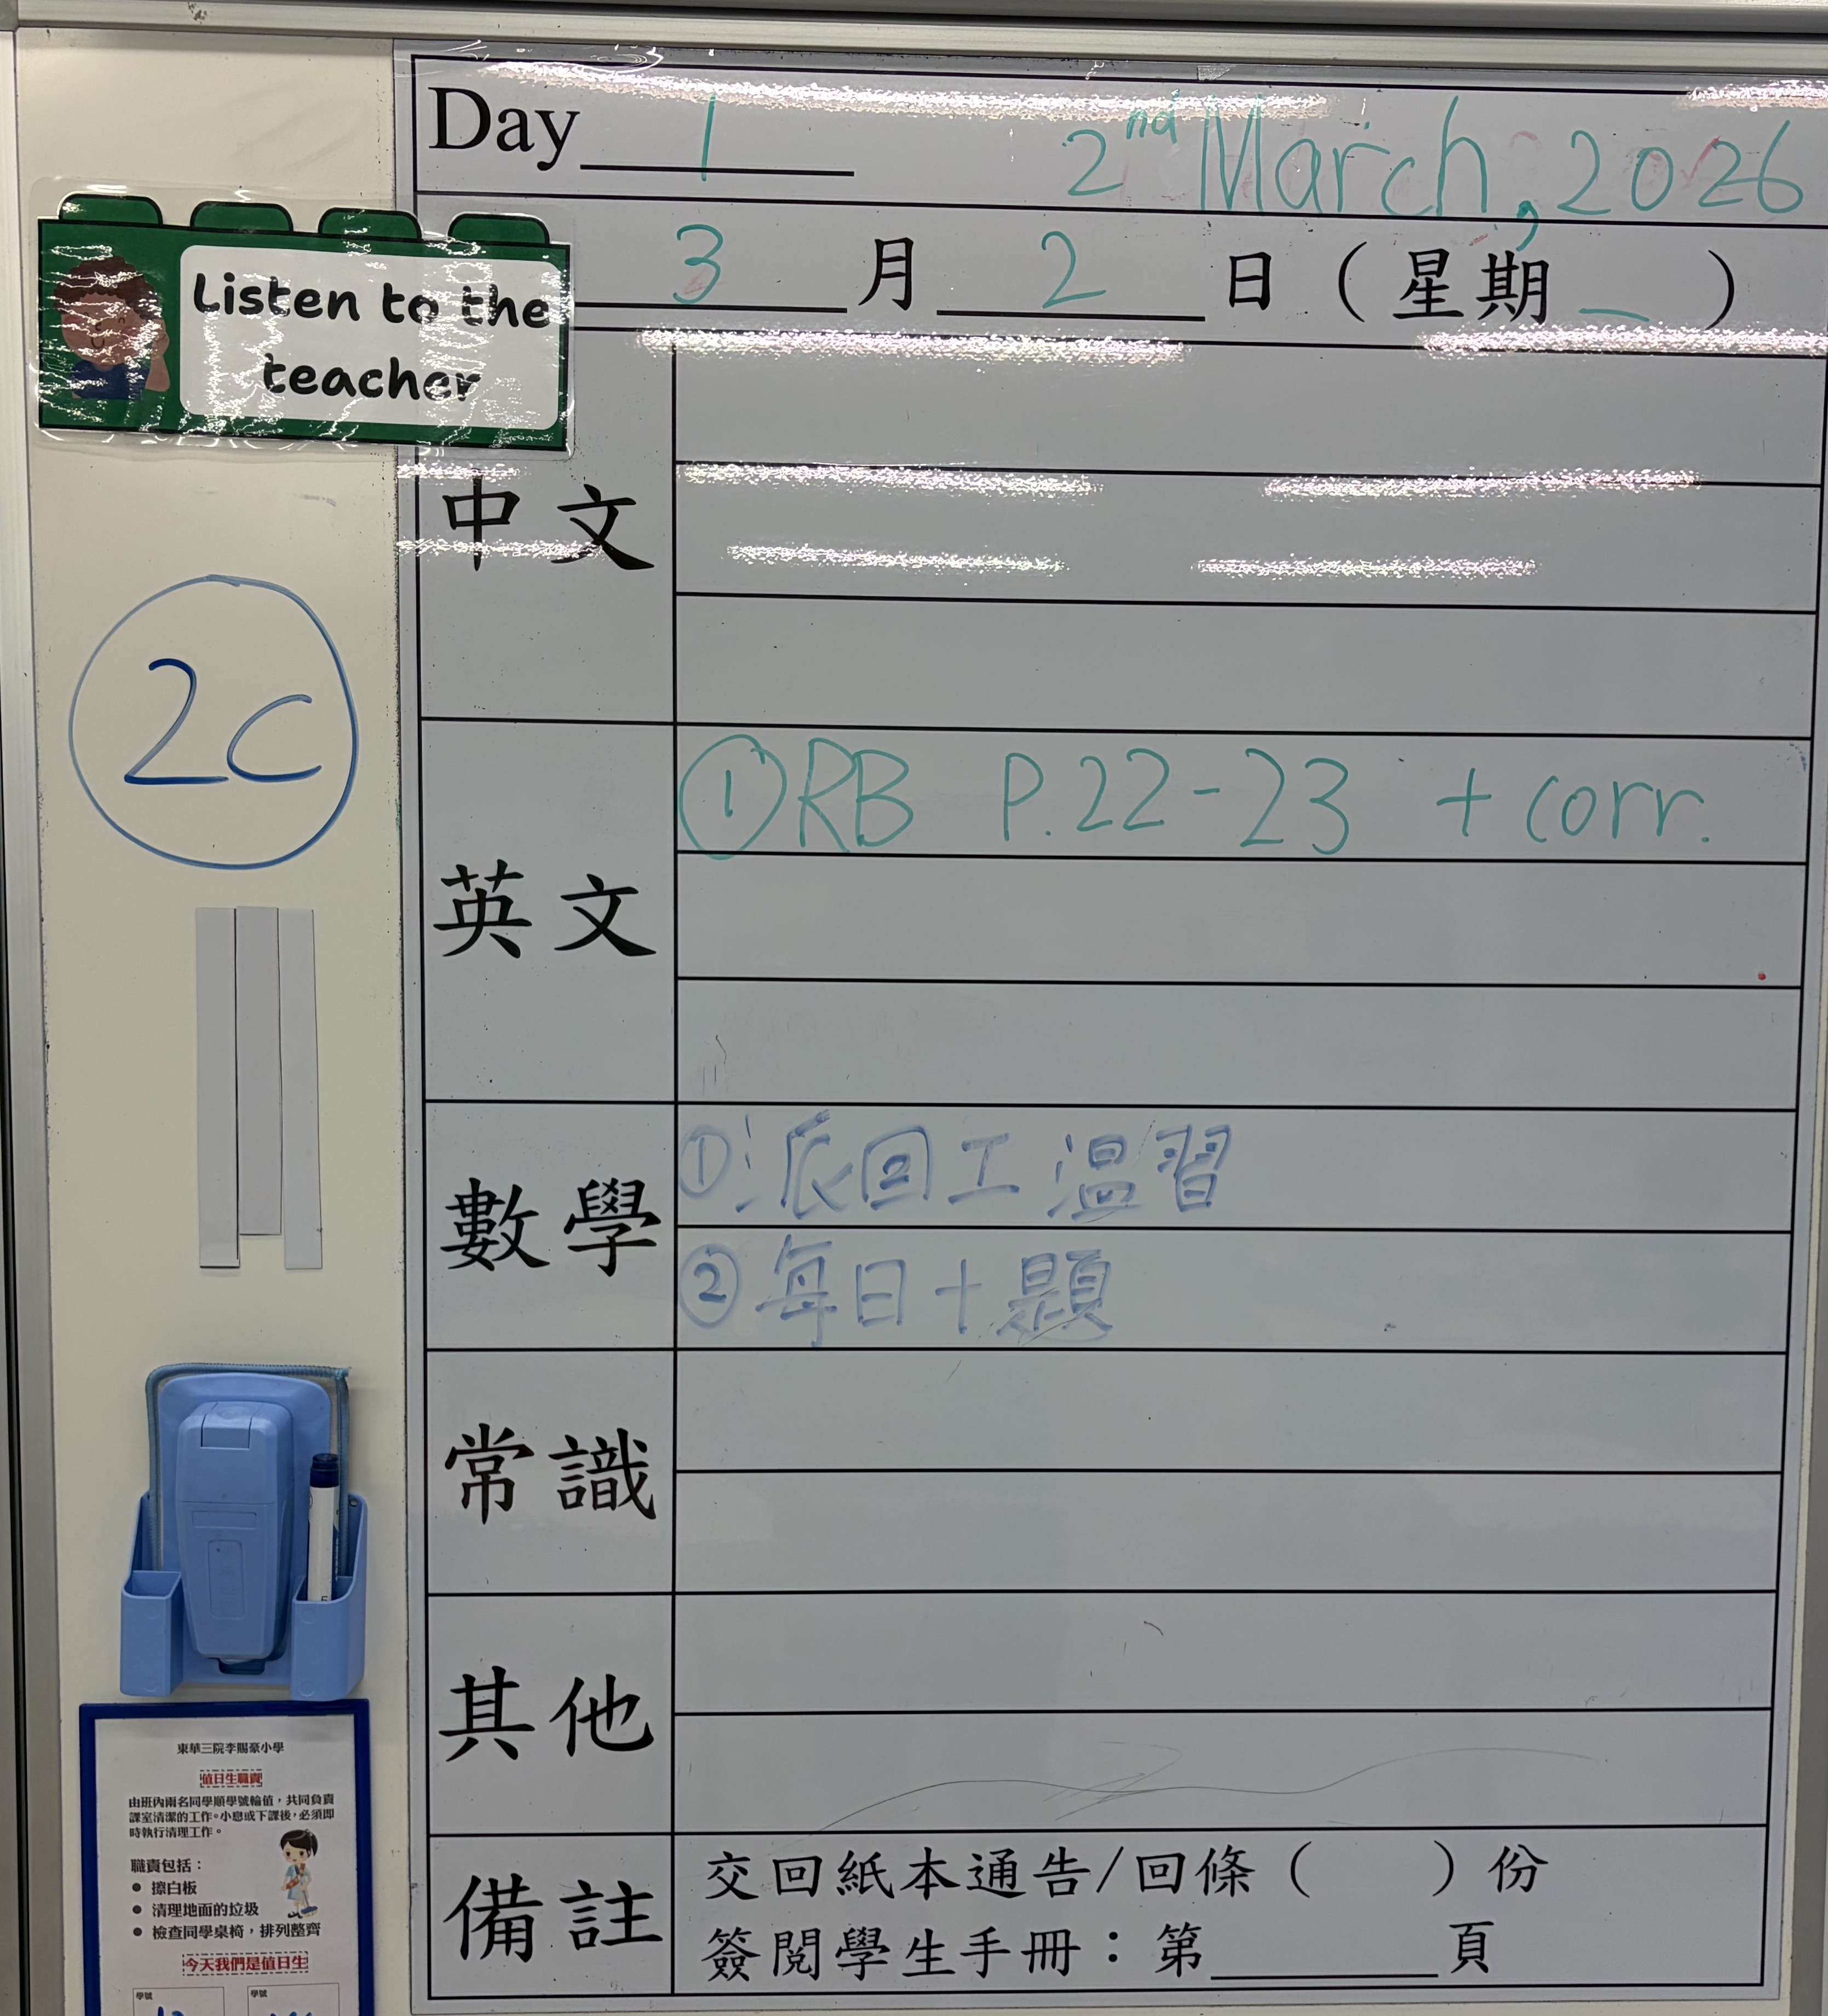 Day 1 2nd March, 2026
3 月 2 日（星期 一 ）
Listen to the
teacher
中文
2C
英文
①RB P.22-23 + corr.
數學
①派回工溫習
②每日十題
常識
其他
備註
交回紙本通告/回條（ ）份
簽閱學生手冊：第 頁
東華三院李賜豪小學
值日生職責
由班內兩名同學順學號輪值，共同負責
課室清潔的工作。小息或下課後，必須即
時執行清理工作。
職責包括：
● 擦白板
● 清理地面的垃圾
● 檢查同學桌椅，排列整齊
今天我們是值日生
學號 學號